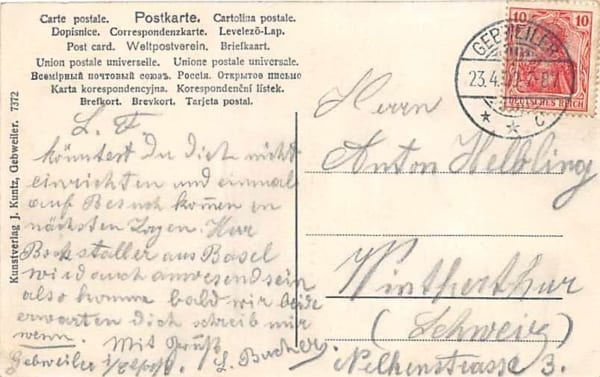 Carte postale. Postkarte. Cartolina postale.
Dopisnice. Correspondenzkarte. Levelező-Lap.
Post card. Weltpostverein. Briefkaart.
Union postale universelle. Unione postale universale.
Всемірный почтовый союзъ. Россія. Открытое письмо
Karta korespondencyjna. Korespondenční lístek.
Brefkort. Brevkort. Tarjeta postal.
Kunstverlag J. Kuntz, Gebweiler. 7372
10 10
DEUTSCHES REICH
GEBWEILER
23.4.
* * C
L. F.
könntest Du Dich nicht
einrichten und einmal
auf Besuch kommen in
nächsten Tagen. Herr
Bockstaller aus Basel
wird auch anwesend sein
also komme bald wir beide
erwarten Dich schreib mir
wenn. Mit Gruß
Gebweiler L. Bucher.
Herrn
Anton Helbling
Wintherthur
(Schweiz)
Nelkenstrasse 3.